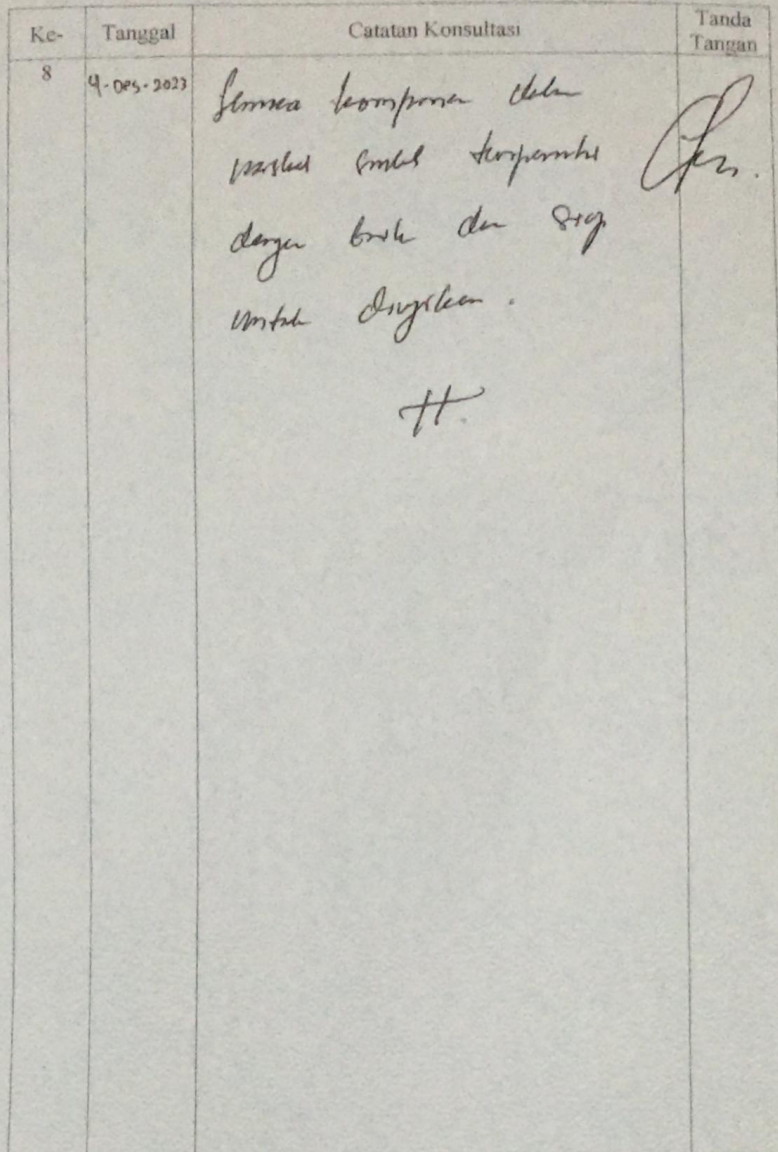 Ke- Tanggal Catatan Konsultasi Tanda Tangan
8 4-Des-2023 Semua komponen dalam
naskah sudah terpenuhi
dengan baik dan siap
untuk diujikan.